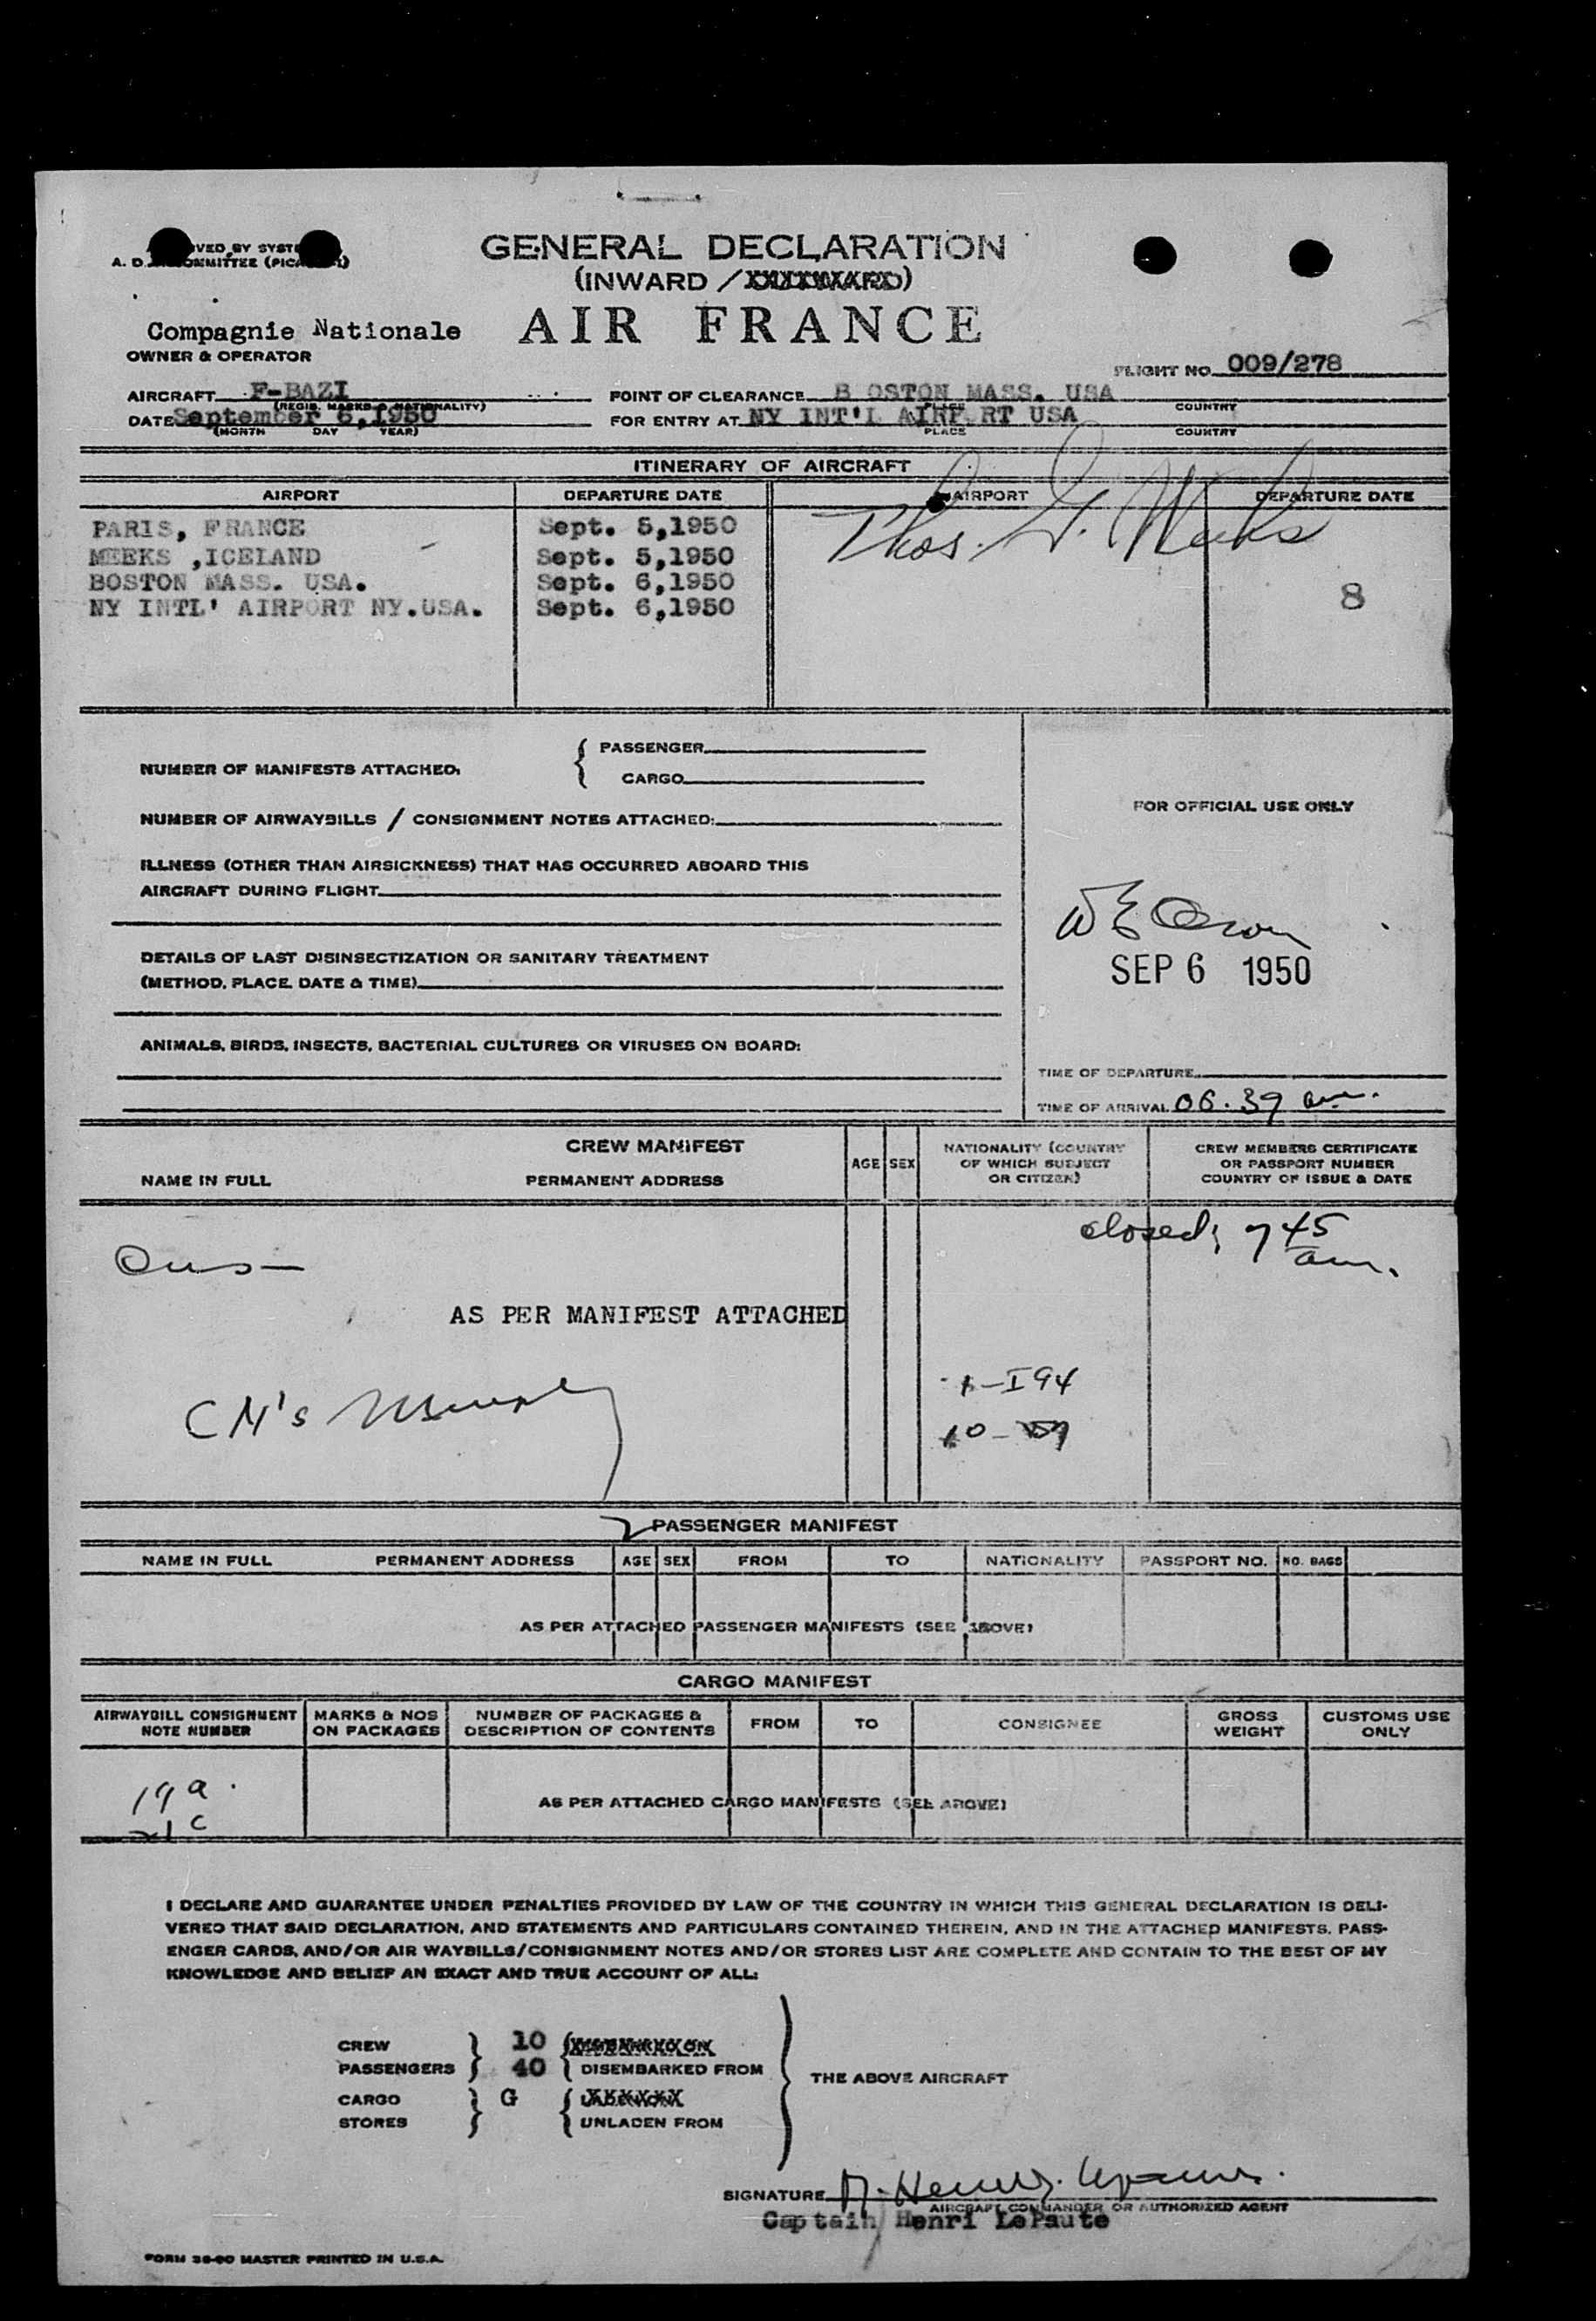 GENERAL DECLARATION
A. D. COMMITTEE
(INWARD /
Compagnie Nationale AIR FRANCE
OWNER & OPERATOR
FLIGHT NO. 009/278
AIRCRAFT F-BAZI POINT OF CLEARANCE B OSTON MASS. USA
(REGIS. MARKS & NATIONALITY) PLACE COUNTRY
DATE September 6,1950 FOR ENTRY AT NY INT'L AIRP RT USA
(MONTH DAY YEAR) PLACE COUNTRY
ITINERARY OF AIRCRAFT
AIRPORT DEPARTURE DATE AIRPORT DEPARTURE DATE
PARIS, FRANCE Sept. 5,1950 Thos. G. Weeks
MEEKS ,ICELAND Sept. 5,1950
BOSTON MASS. USA. Sept. 6,1950
NY INTL' AIRPORT NY.USA. Sept. 6,1950 8
NUMBER OF MANIFESTS ATTACHED:
PASSENGER
CARGO
FOR OFFICIAL USE ONLY
NUMBER OF AIRWAYBILLS / CONSIGNMENT NOTES ATTACHED:
ILLNESS (OTHER THAN AIRSICKNESS) THAT HAS OCCURRED ABOARD THIS
AIRCRAFT DURING FLIGHT
DETAILS OF LAST DISINSECTIZATION OR SANITARY TREATMENT
(METHOD, PLACE, DATE & TIME)
SEP 6 1950
ANIMALS, BIRDS, INSECTS, BACTERIAL CULTURES OR VIRUSES ON BOARD:
TIME OF DEPARTURE
TIME OF ARRIVAL 06.39 am.
CREW MANIFEST
NAME IN FULL PERMANENT ADDRESS AGE SEX
NATIONALITY (COUNTRY
OF WHICH SUBJECT
OR CITIZEN)
CREW MEMBERS CERTIFICATE
OR PASSPORT NUMBER
COUNTRY OF ISSUE & DATE
closed; 745
am.
AS PER MANIFEST ATTACHED
1-I94
CM's
10-
PASSENGER MANIFEST
NAME IN FULL PERMANENT ADDRESS AGE SEX FROM TO NATIONALITY PASSPORT NO. NO. BAGS
AS PER ATTACHED PASSENGER MANIFESTS (SEE ABOVE)
CARGO MANIFEST
AIRWAYBILL CONSIGNMENT
NOTE NUMBER
MARKS & NOS
ON PACKAGES
NUMBER OF PACKAGES &
DESCRIPTION OF CONTENTS
FROM TO CONSIGNEE
GROSS
WEIGHT
CUSTOMS USE
ONLY
19a
AS PER ATTACHED CARGO MANIFESTS (SEE ABOVE)
I DECLARE AND GUARANTEE UNDER PENALTIES PROVIDED BY LAW OF THE COUNTRY IN WHICH THIS GENERAL DECLARATION IS DELI-
VERED THAT SAID DECLARATION, AND STATEMENTS AND PARTICULARS CONTAINED THEREIN, AND IN THE ATTACHED MANIFESTS, PASS-
ENGER CARDS, AND/OR AIR WAYBILLS/CONSIGNMENT NOTES AND/OR STORES LIST ARE COMPLETE AND CONTAIN TO THE BEST OF MY
KNOWLEDGE AND BELIEF AN EXACT AND TRUE ACCOUNT OF ALL:
CREW 10
PASSENGERS 40 DISEMBARKED FROM
THE ABOVE AIRCRAFT
CARGO G
STORES UNLADEN FROM
SIGNATURE
AIRCRAFT COMMANDER OR AUTHORIZED AGENT
Captain Henri LePaute
FORM 36-90 MASTER PRINTED IN U.S.A.